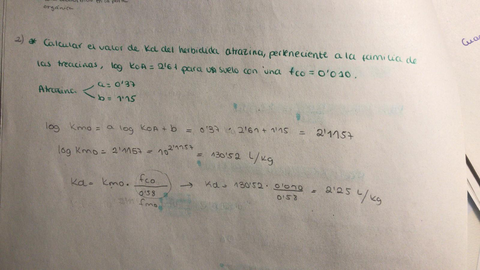 orgánico
2) * Calcular el valor de Kd del herbidida atrazina, perteneciente a la familia de
las treacinas, log KOA = 2'61 para un suelo con una fco = 0'010.
Atrazina < a = 0'37
b = 1'15
log Kmo = a log KOA + b = 0'37 · 2'61 + 1'15 = 2'1157
log Kmo = 2'1157 = 10^2'1157 = 130'52 L/kg
Kd = Kmo · fco / 0'58 → Kd = 130'52 · 0'010 / 0'58 = 2'25 L/kg
fmo